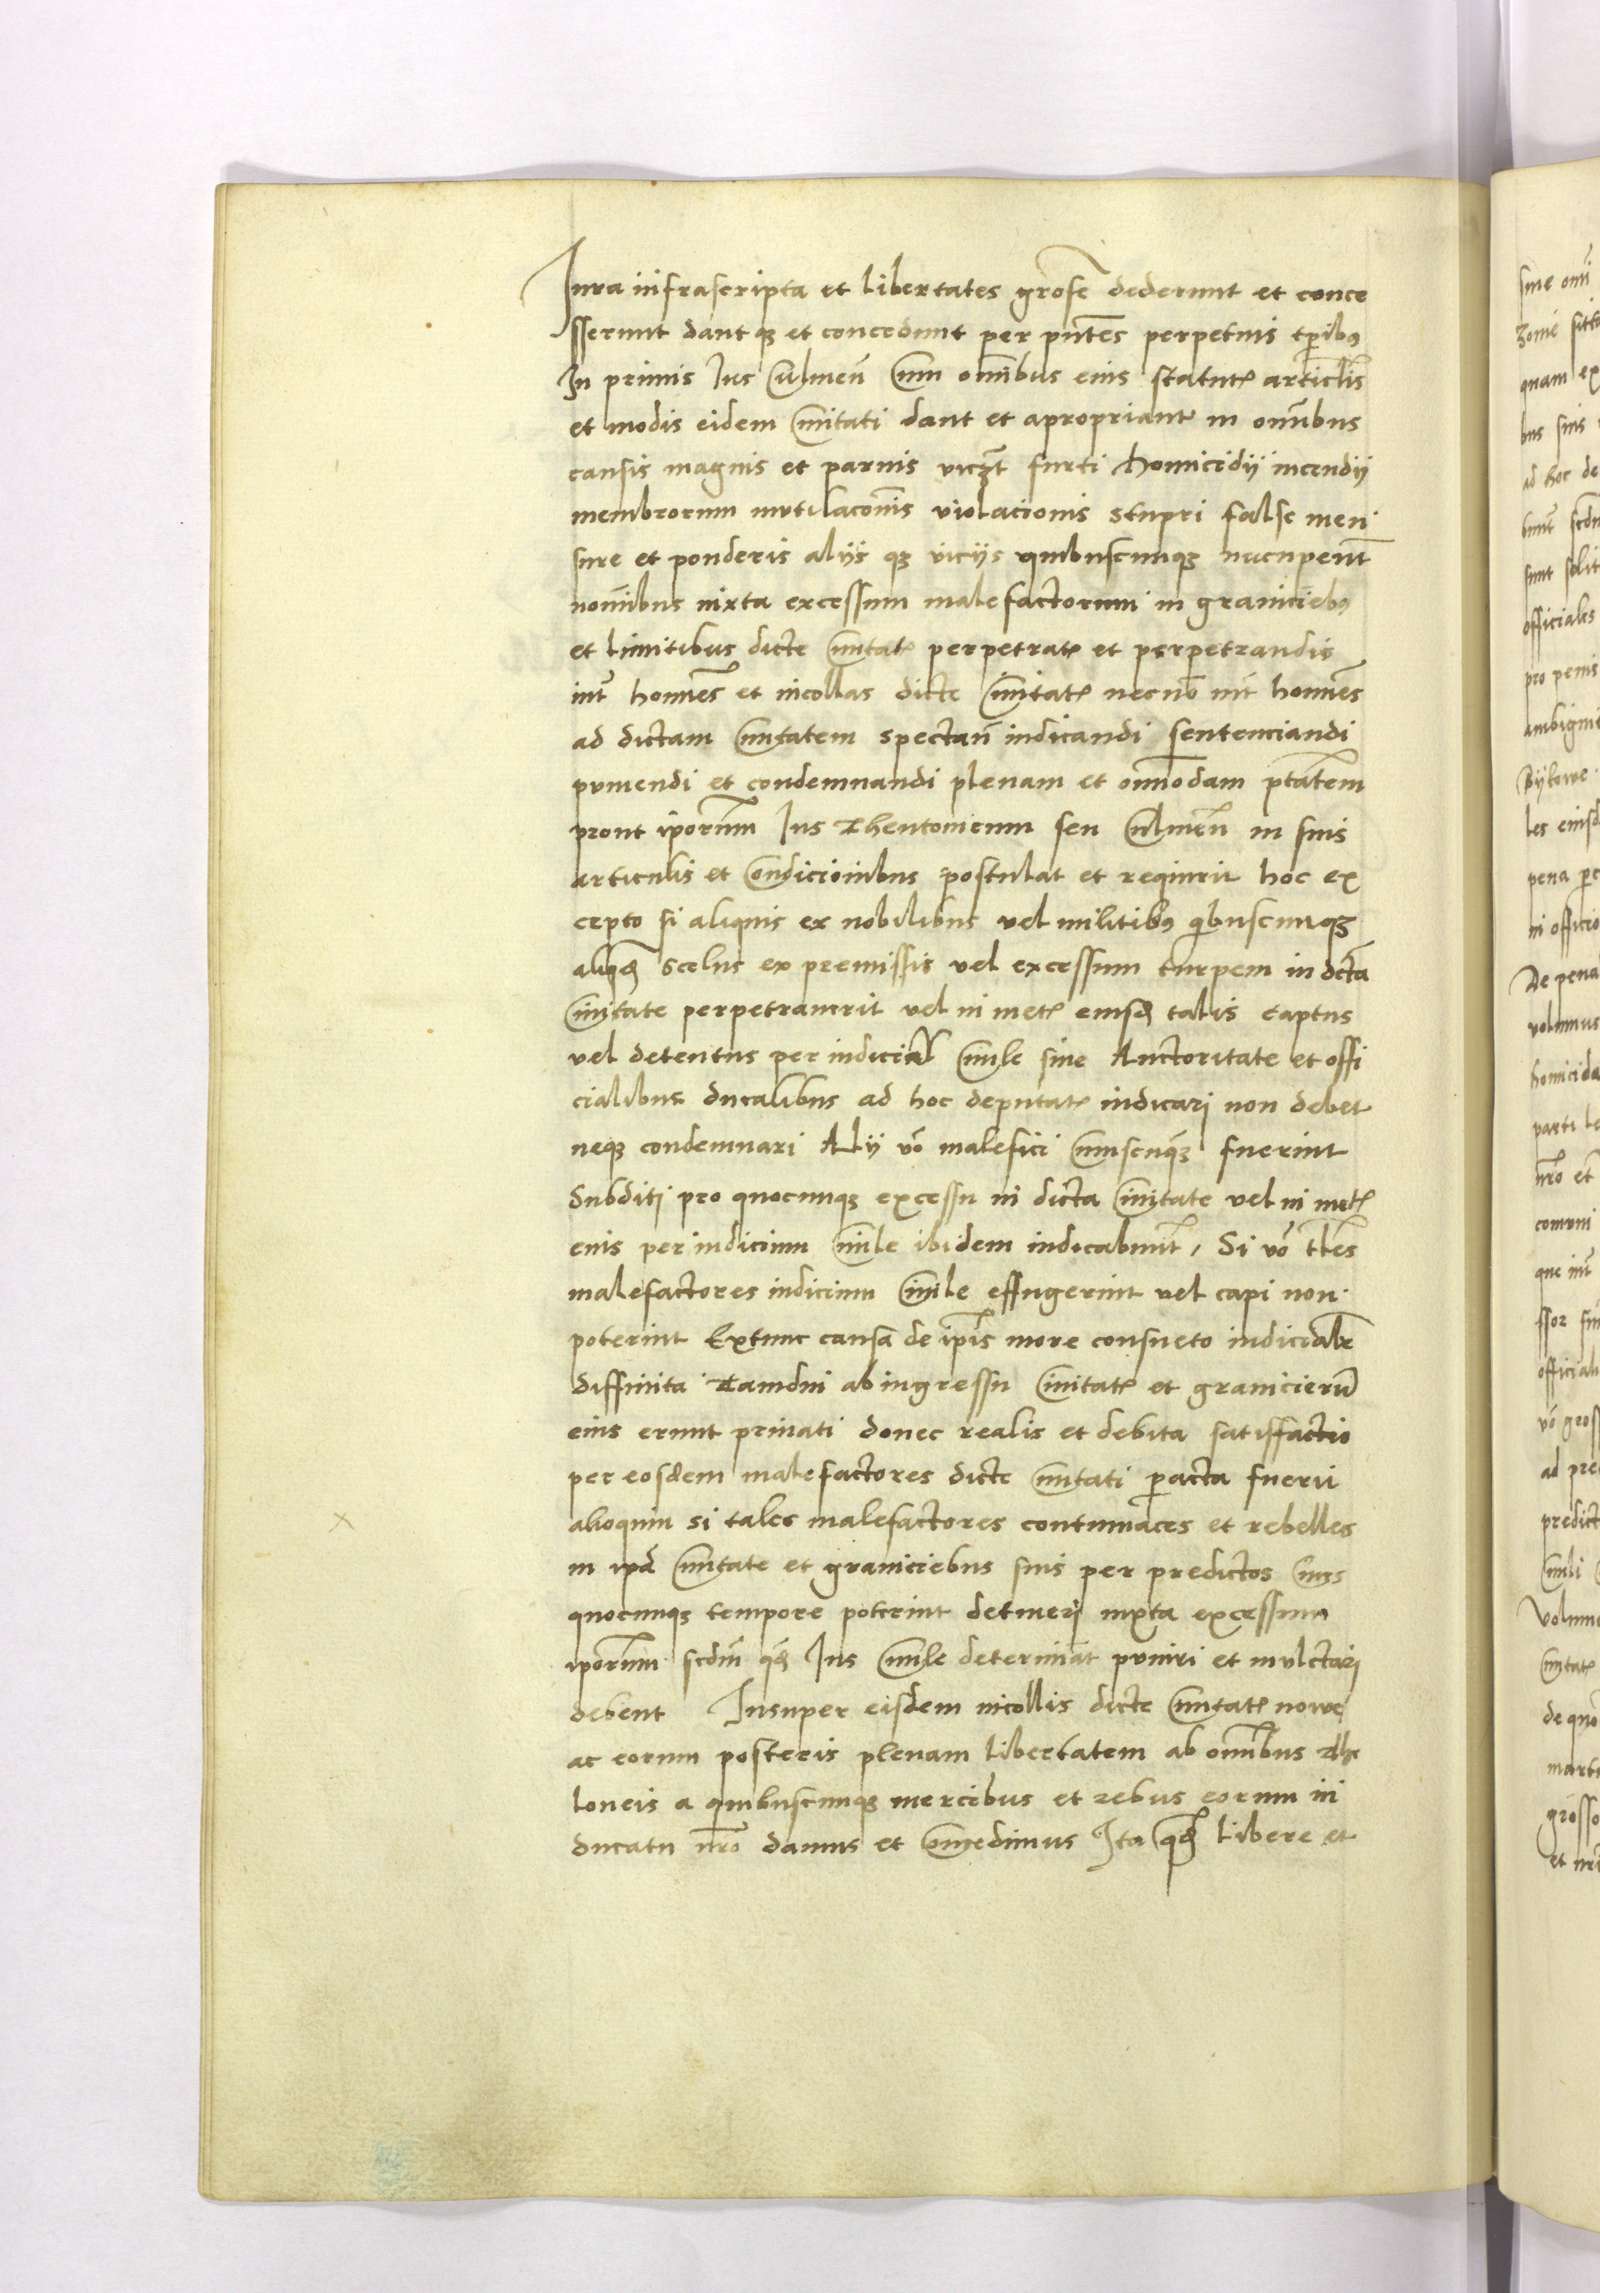 Jura infrascripta et libertates grose dederunt et conce
sserunt dantq; et concedunt per pntes perpetuis tpribus
In primis Jus Culmen Cum omibus eius statut articlis
et modis eidem Civitati dant et apropriant in omibus
causis magnis et parvis viczt furti homicidij incendij
membrorum mutilaconis violacionis stupri false men
sure et ponderis alijs q; vicijs quibuscumq; nucupent
nomibus iuxta excessum malefactorum in graniciebus
et limitibus dicte Civitat perpetrat et perpetrandis
int homies et incollas dicte Civitat necno int homies
ad dictam Civitatem spectan iudicandi sentenciandi
puniendi et condemnandi plenam et omodam ptatem
prout iporum Jus Theutonicum seu Culmen in suis
articulis et Condicionibus postulat et requirit hoc ex
cepto si aliquis ex nobilibus vel militibus qibuscumq;
aliqd scelus ex premissis vel excessum turpem in dcta
Civitate perpetraverit vel in met eiusd talis captus
vel detentus per iudicial Civile sine Auctoritate et offi
cialibus ducalibus ad hoc deputat iudicari non debet
neq; condemnari Alij vo malefici cuiuscuq; fuerint
Subditi pro quocumq; excessu in dicta Civitate vel in met
eius per iudicium Civile ibidem iudicabunt, Si vo tles
malefactores iudicium Civile effugerint vel capi non
poterint Extunc causa de ipis more consueto iudicialr
diffinita Tamdiu ab ingressu Civitat et granicieru
eius erunt privati donec realis et debita satisffactio
per eosdem malefactores dicte Civitati pacta fuerit
alioquin si tales malefactores contumaces et rebelles
in ipa Civitate et graniciebus suis per predictos Cives
quocumq; tempore poterint detineri iuxta excessum
iporum scdm qd Jus Civile determiat puniri et mulctari
debent Insuper eisdem incollis dicte Civitat nowe
ac eorum posteris plenam libertatem ab omibus The
loneis a quibuscumq; mercibus et rebus eorum in
ducatu nro damus et Concedimus Ita qd libere et